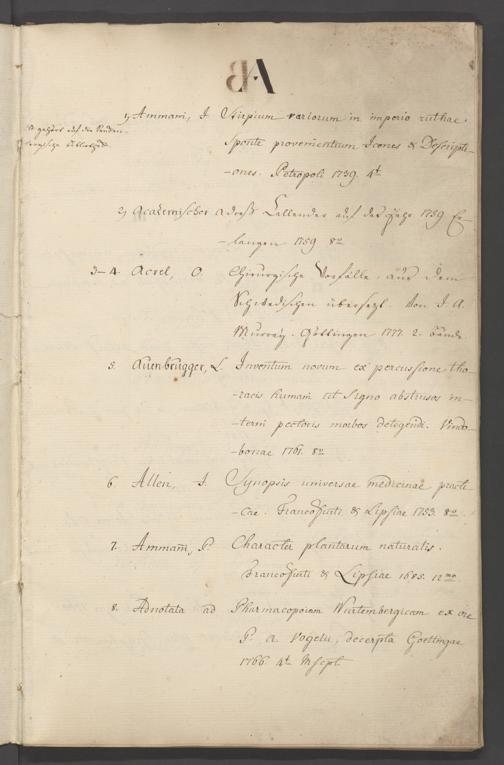 A
1, Ammani, I. Stirpium rariorum in imperio ruthae
sponte provenientium Icones & Descripti-
-ones. Petropoli 1739. 4t.
gehört auf die
2, Academischer Adreß Callender auf das Jahr 1759 Er-
-langen 1759 8vo
3-4. Acrel, O. Chirurgische Vorfälle aus dem
Schwedischen übersezt. Von I. A.
Murray. Göttingen 1777. 2. Bände
5. Auenbrugger, L. Inventum novum ex percussione tho-
-racis humani ut signo abstrusos in-
-terni pectoris morbos detegendi. Vindo-
-bonae 1761. 8vo
6. Allen, I. Synopsis universae medicinae practi-
-cae. Francofurti & Lipsiae 1753. 8vo
7. Ammani, P. Character plantarum naturalis.
Francofurti & Lipsiae 1685. 12mo
8. Adnotata ad Pharmacopoeam Wurtembergicam ex ore
P. A. Vogelii, decerpta Goettingae
1766. 4t. Mscpt.